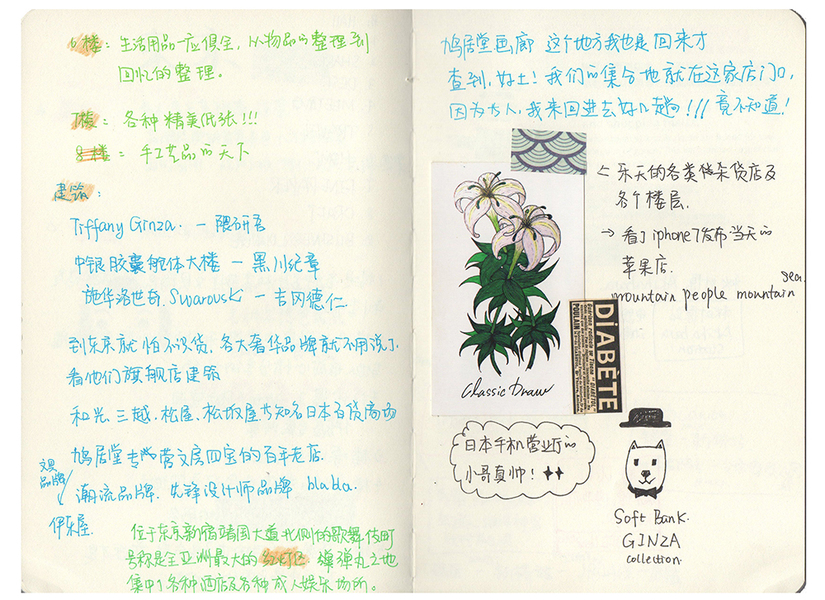 6楼：生活用品一应俱全，从物品的整理到
回忆的整理。
7楼：各种精美纸张！！！
8楼：手工艺品的天下
建筑：
Tiffany Ginza. — 隈研吾
中银胶囊舱体大楼 — 黑川纪章
施华洛世奇. Swarovski — 吉冈德仁
到东京就怕不识货，各大奢华品牌就不用说了
看他们旗舰店建筑
和光.三越.松屋.松坂屋 知名日本百货商场
鸠居堂专 营文房四宝的百年老店.
文具
品牌
潮流品牌. 先锋设计师品牌 blabla.
伊东屋.
位于东京新宿靖国大道北侧的歌舞伎町
号称是全亚洲最大的红灯区 弹丸之地
集中了各种酒店及各种成人娱乐场所。
鸠居堂画廊 这个地方我也是回来才
查到，好土！我们的集合地就在这家店门口，
因为 我来回进去好几趟！！！竟不知道！
← 乐天的各类 杂货店及
各个楼层.
→ 看了iphone7发布当天的
苹果店.
mountain people mountain
sea.
DIABÈTE
Classic Draw
日本手机营业厅的
小哥真帅！
Soft Bank.
GINZA
collection.